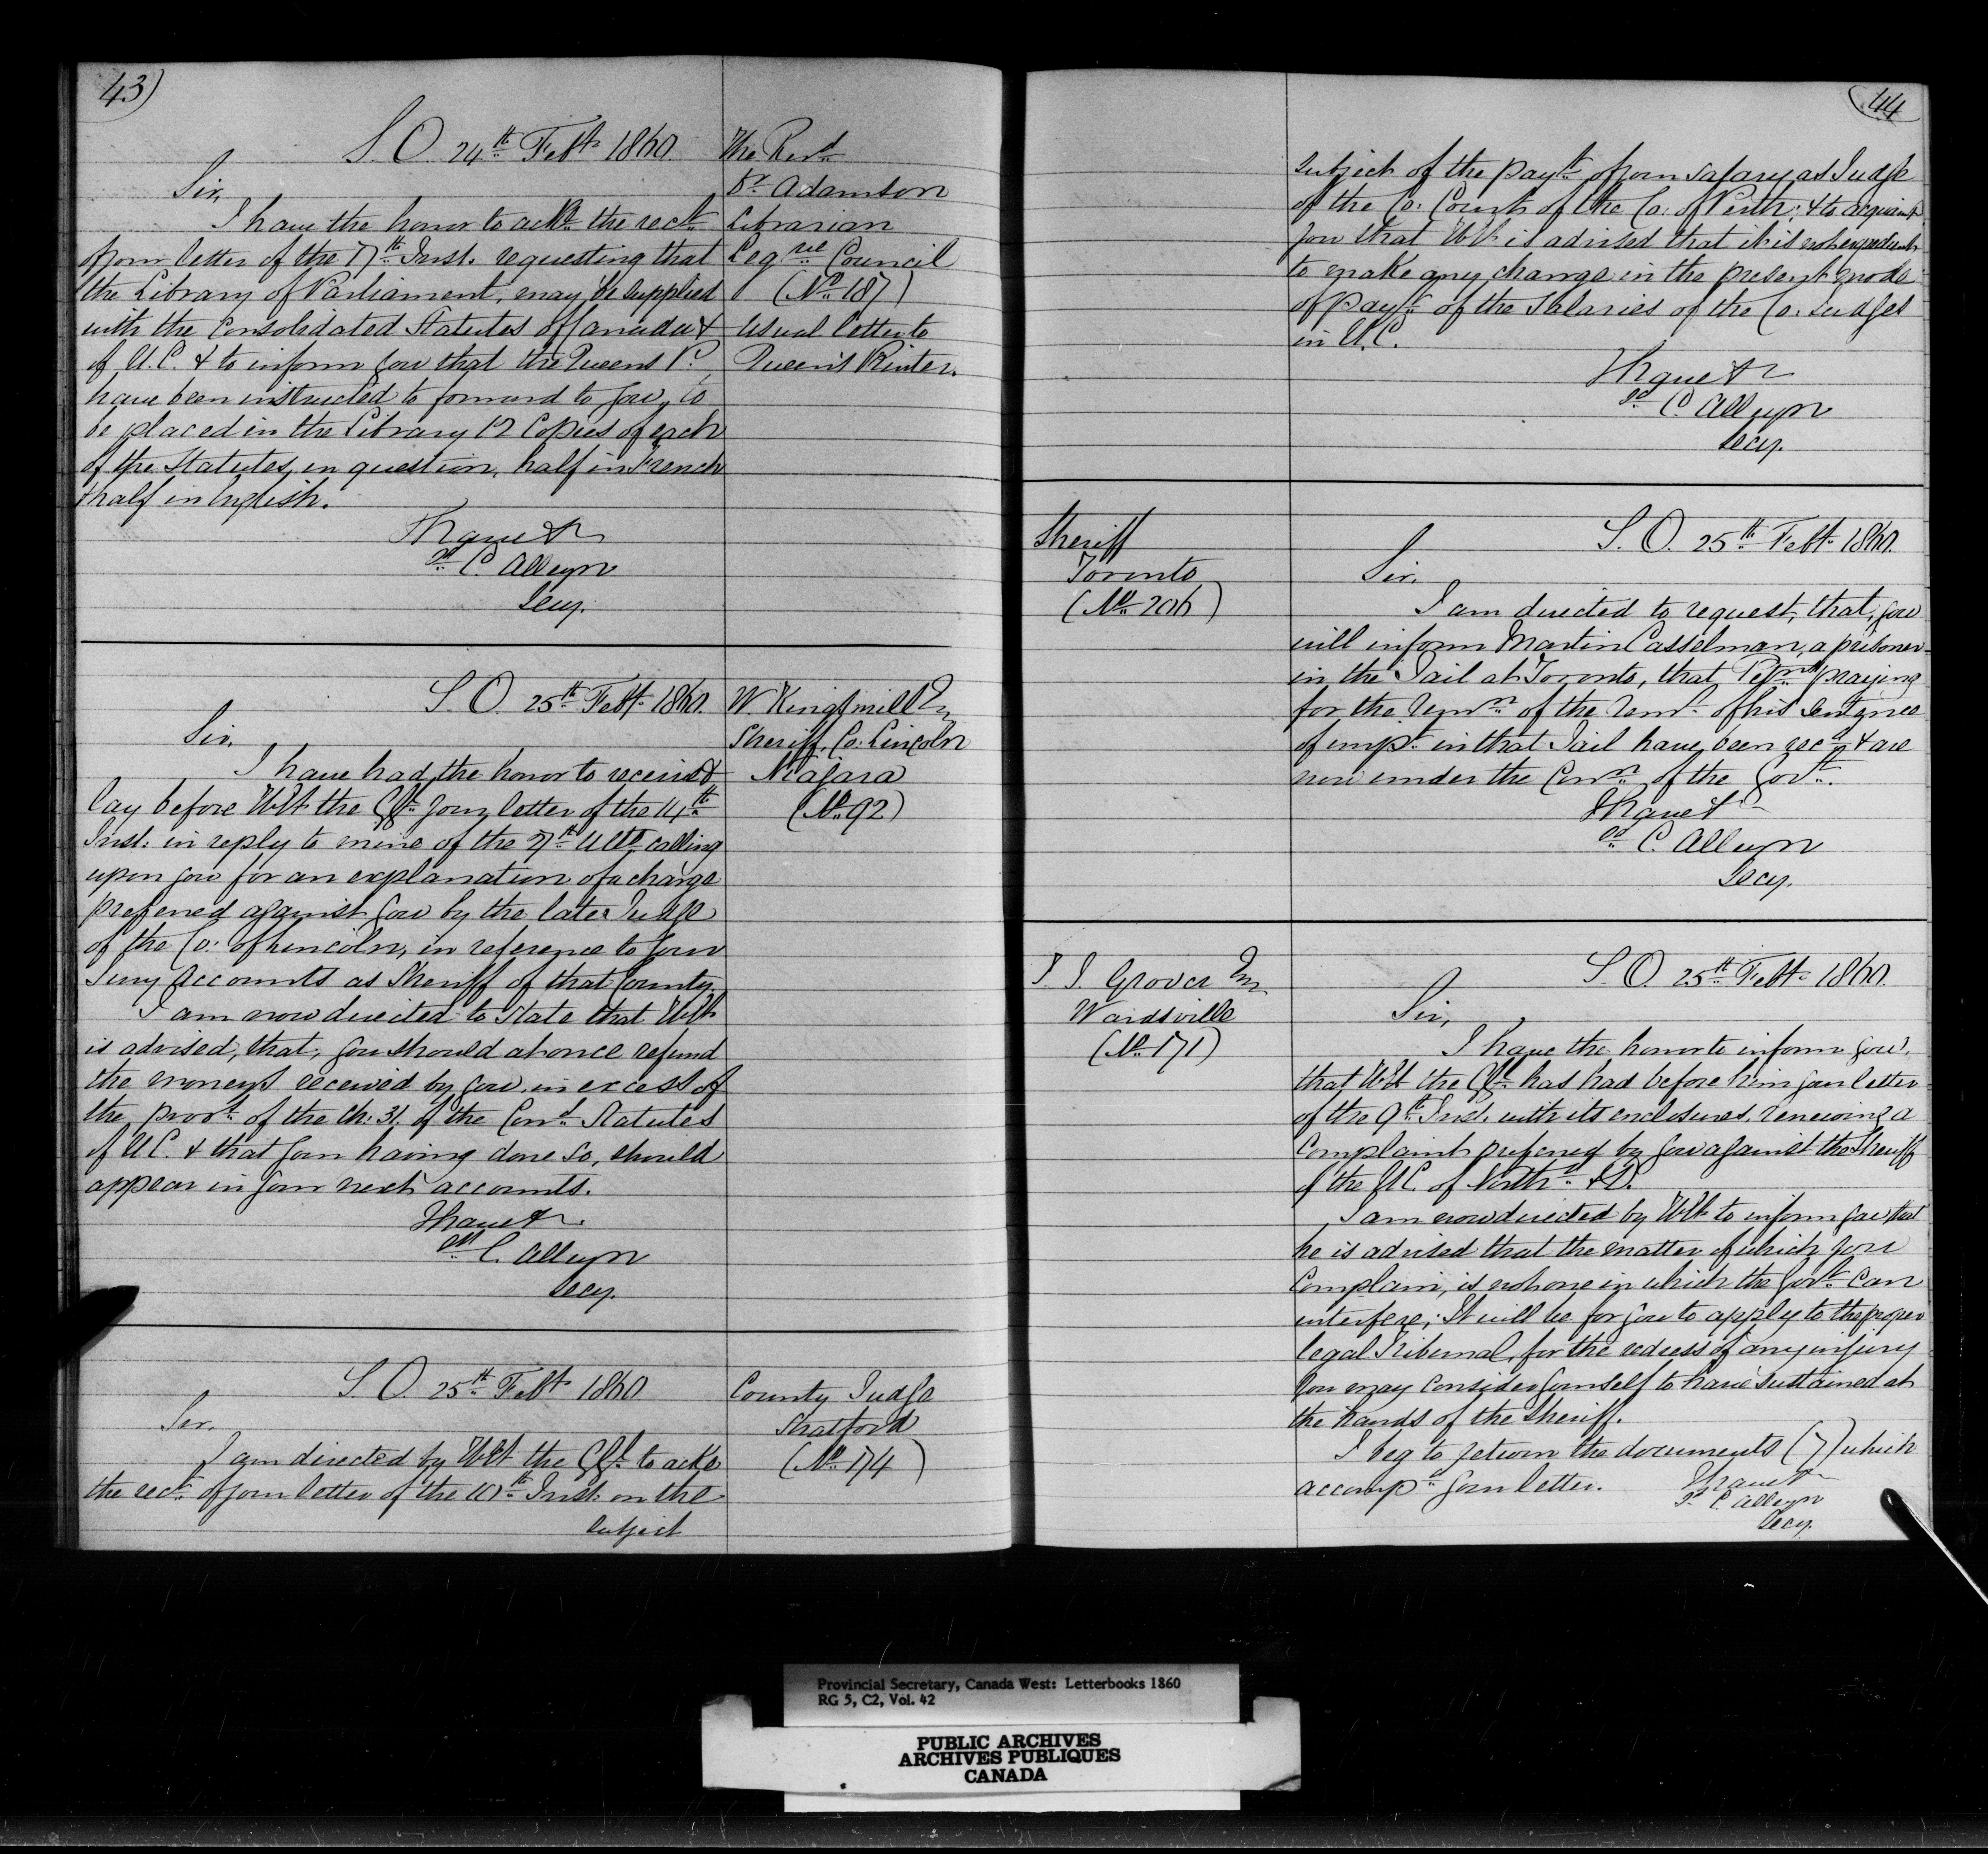 43)
S. O. 24th Feby. 1860.
Sir,
I have the honor to ackn. the rect.
of your letter of the 7th Inst. requesting that
the Library of Parliament, may be supplied
with the Consolidated Statutes of Canada &
of U.C. & to inform you that the Queens P.
have been instructed to forward to you, to
be placed in the Library 12 Copies of each
of the Statutes, in question, half in French
& half in English.
I have &c
sd. C. Alleyn
Secy.
The Revd.
Dr. Adamson
Librarian
Legve Council
(No. 187)
Usual letter to
Queen's Printer.
S. O. 25th Feby. 1860.
Sir,
I have had the honor to receive &
lay before H.E. the G.G. your letter of the 14th
Inst. in reply to mine of the 27th Ulto. calling
upon you for an explanation of a charge
preferred against you by the late Judge
of the Co: of Lincoln, in reference to your
Jury Accounts as Sheriff of that County.
I am now directed to State that H.E.
is advised, that, you should at once refund
the moneys received by you in excess of
the prov. of the Ch: 31. of the Cond. Statutes
of U.C. & that your having done so, should
appear in your next accounts.
I have &c.
sd. C. Alleyn
Secy.
W. Kingsmill Er
Sheriff, Co: Lincoln
Niagara
(No. 92)
S. O. 25th Feby. 1860
Sir,
I am directed by H.E. the G.G. to ackn
the rect. of your letter of the 10th Inst. on the
subject
County Judge
Stratford
(No. 174)
(44
subject of the payt. of your salary as Judge
of the Co: Court of the Co: of Perth; & to acquaint
you that H.E. is advised that it is not expedient
to make any change in the present mode
of payt. of the Salaries of the Co: Judges
in U.C.
I have &c
sd. C. Alleyn
Secy.
Sheriff
Toronto
(No. 206)
S. O. 25th Feby. 1860.
Sir,
I am directed to request, that, you
will inform Martin Casselman, a prisoner
in the Jail at Toronto, that Petns praying
for the of the of his Sentence
of impt. in that Jail have been recd. & are
now under the Conn. of the Govt.
I have &c
sd. C. Alleyn
Secy.
Grover Er
Wardsville
(No. 171)
S. O. 25th Feby. 1860.
Sir,
I have the honor to inform you,
that H.E. the G.G. has had before him your letter
of the 9th Inst. with its enclosures, renewing a
Complaint preferred by you against the Sheriff
of the U.C. of Northd. & D.
I am now directed by H.E. to inform you that
he is advised that the matter of which you
Complain, is not one in which the Govt. Can
interfere; It will be for you to apply to the proper
legal Tribunal, for the redress of any injury
you may consider yourself to have sustained at
the hands of the Sheriff.
I beg to return the documents (7) which
accompd. your letter.
I have &c
sd. C. Alleyn
Secy.
Provincial Secretary, Canada West: Letterbooks 1860
RG 5, C2, Vol. 42
PUBLIC ARCHIVES
ARCHIVES PUBLIQUES
CANADA